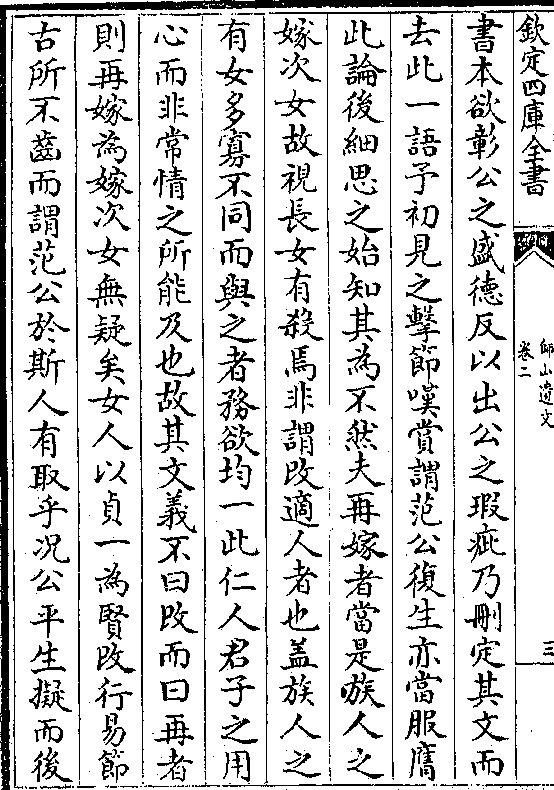 欽定四庫全書
師山遺文
卷二
三
書本欲彰公之盛德反以出公之瑕疵乃刪定其文而
去此一語予初見之擊節嘆賞謂范公復生亦當服膺
此論後細思之始知其為不然夫再嫁者當是族人之
嫁次女故視長女有殺焉非謂改適人者也盖族人之
有女多寡不同而與之者務欲均一此仁人君子之用
心而非常情之所能及也故其文義不曰改而曰再者
則再嫁為嫁次女無疑矣女人以貞一為賢改行易節
古所不齒而謂范公於斯人有取乎况公平生擬而後